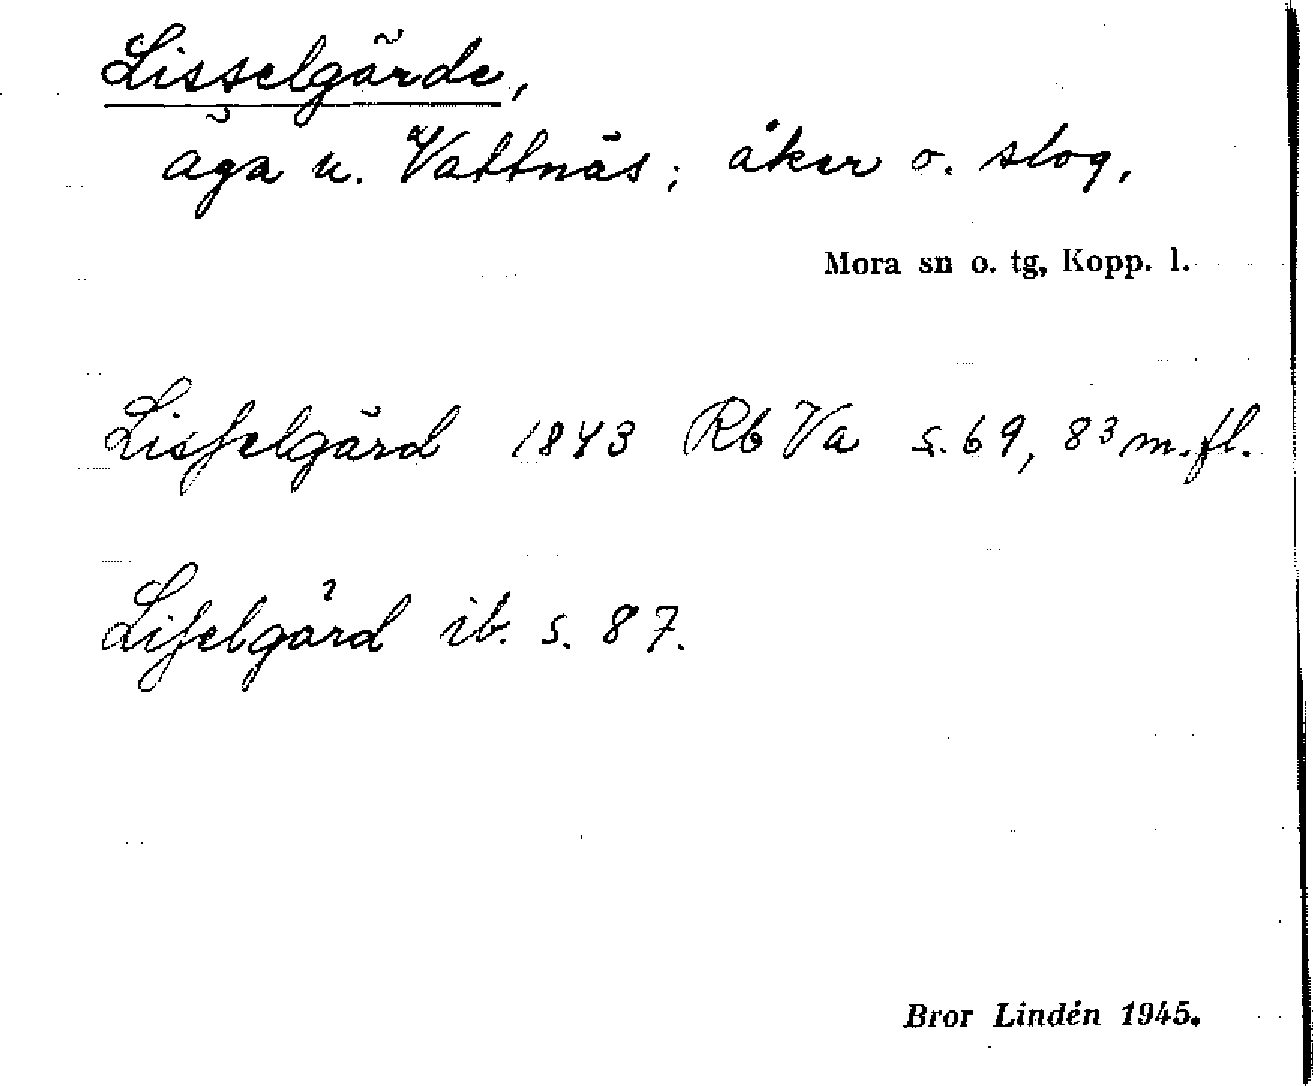 Lisselgärde,
äga u. Vattnäs; åker o. slog,
Mora sn o. tg, Kopp. l.
Lisselgärd 1843 Rb Va s. 69, 83 m.fl.
Lisselgård ib. s. 87.
Bror Lindén 1945.